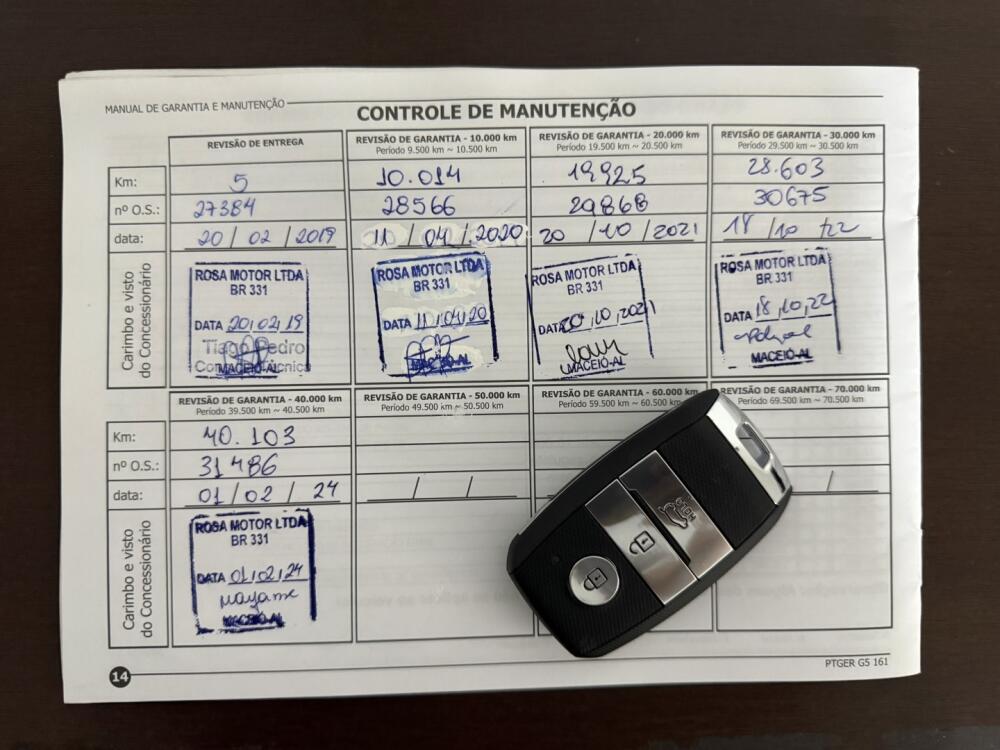 MANUAL DE GARANTIA E MANUTENÇÃO
CONTROLE DE MANUTENÇÃO
REVISÃO DE ENTREGA
REVISÃO DE GARANTIA - 10.000 km
Período 9.500 km ~ 10.500 km
REVISÃO DE GARANTIA - 20.000 km
Período 19.500 km ~ 20.500 km
REVISÃO DE GARANTIA - 30.000 km
Período 29.500 km ~ 30.500 km
Km: 5 10.014 19925 28.603
nº O.S.: 27384 28566 29868 30675
data: 20 / 02 / 2019 11 / 04 / 2020 20 / 10 / 2021 18 / 10 / 22
Carimbo e visto
do Concessionário
ROSA MOTOR LTDA
BR 331
DATA 20,02,19
Tiago Pedro
MACEIÓ-AL
ROSA MOTOR LTDA
BR 331
DATA 11,04,20
MACEIÓ-AL
ROSA MOTOR LTDA
BR 331
DATA 20,10,2021
MACEIÓ-AL
ROSA MOTOR LTDA
BR 331
DATA 18,10,22
MACEIÓ-AL
REVISÃO DE GARANTIA - 40.000 km
Período 39.500 km ~ 40.500 km
REVISÃO DE GARANTIA - 50.000 km
Período 49.500 km ~ 50.500 km
REVISÃO DE GARANTIA - 60.000 km
Período 59.500 km ~ 60.500 km
REVISÃO DE GARANTIA - 70.000 km
Período 69.500 km ~ 70.500 km
Km: 40.103
nº O.S.: 31486
data: 01 / 02 / 24 / / /
Carimbo e visto
do Concessionário
ROSA MOTOR LTDA
BR 331
DATA 01,02,24
MACEIÓ-AL
14
PTGER G5 161